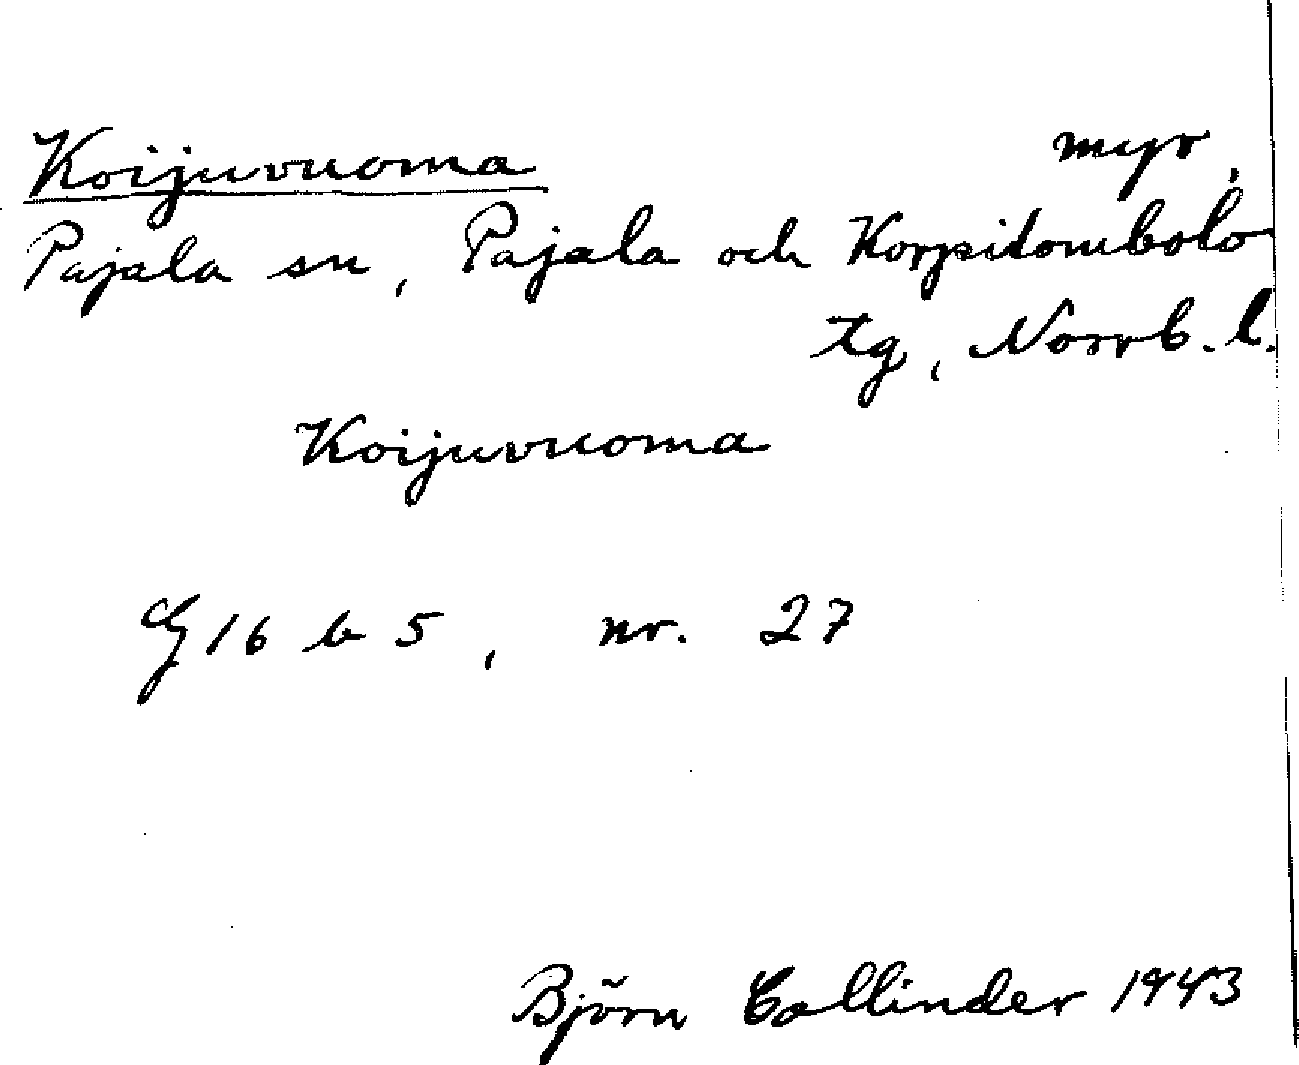 Koijuvuoma myr,
Pajala sn, Pajala och Korpilombolo
tg, Norrb. l.
Koijuvuoma
G 16 b 5, nr. 27
Björn Collinder 1943